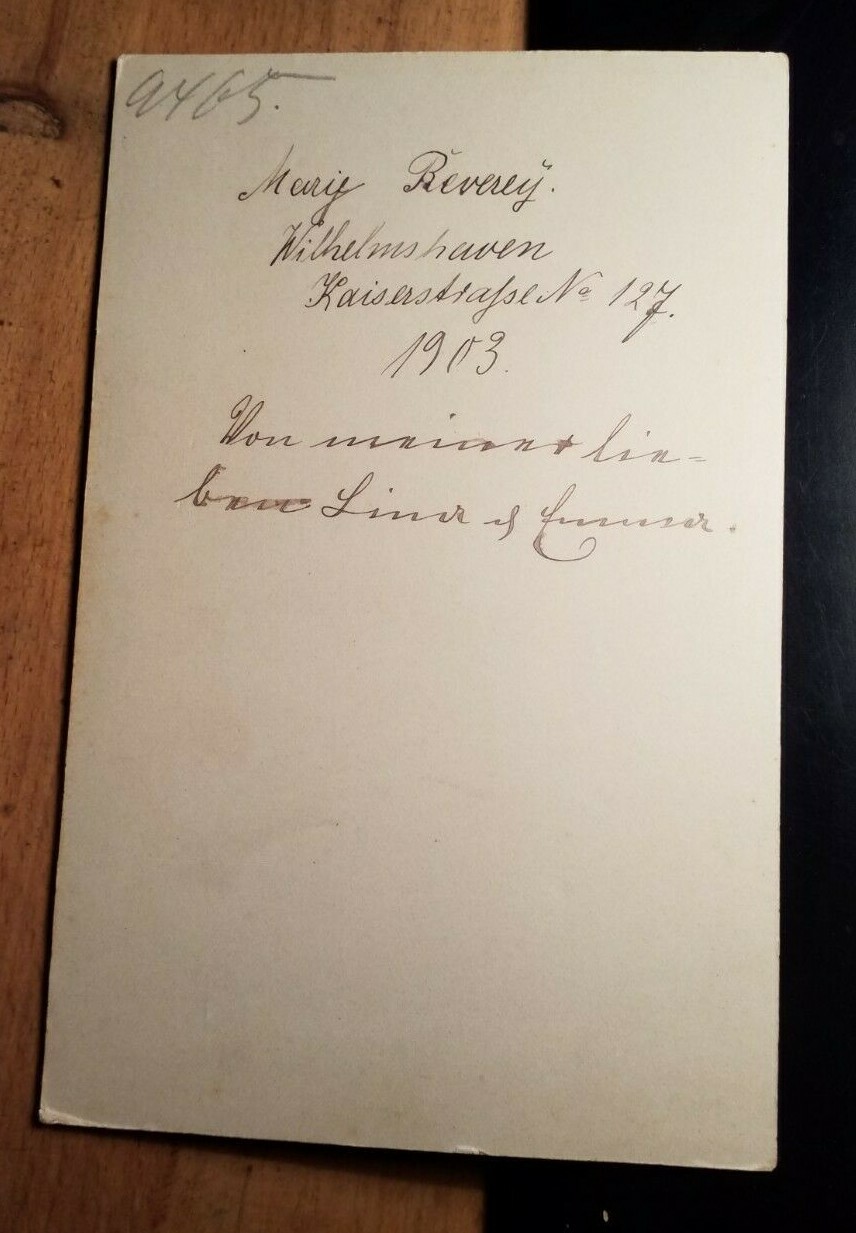 9465.
Marie Beverey.
Wilhelmshaven
Kaiserstraße No 127.
1903.
Von meiner lie=
ben Lina & Emma.